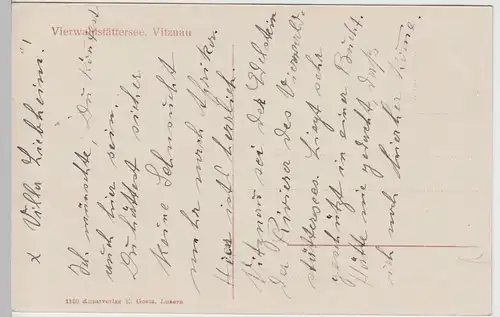 Vierwaldstättersee. Vitznau
x Villa Liebheim!
Ich wünschte, Du könntest
auch hier sein.
Du hättest sicher
keine Sehnsucht
mehr nach Afrika.
Hier ists herrlich.
Vitznau sei der Edelstein
der Riviera des Vierwald-
stättersees. Liegt sehr
geschützt in einer Bucht.
Hätte nie gedacht, dass
ich noch hierher käme.
1160 Kunstverlag E. Goetz, Luzern